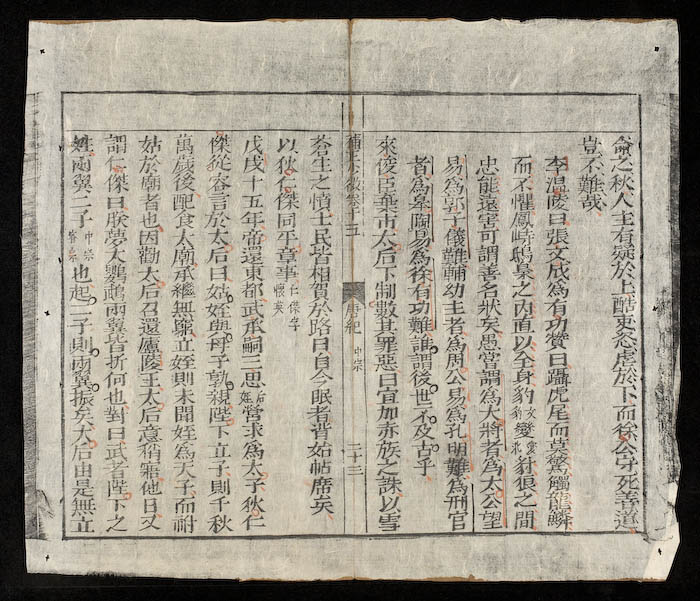 兪之秋人主有疑於上酷吏恣虐於下而徐公守死善道
豈不難哉
李溫陵曰張文成為有功贊曰躡虎尾而莫驚觸龍鱗
而不懼鳳峙鴟梟之內直以全身豹變豺狼之間
忠能遠害可謂善名狀矣愚嘗謂為大將者為太公望
易為郭子儀難輔幼主者為周公易為孔明難為刑官
者為皋陶易為徐有功難誰謂後世不及古乎
來俊臣棄市太后下制數其罪惡曰宜加赤族之誅以雪
唐紀 中宗 二十三
蒼生之憤士民皆相賀於路曰自今眠者背始帖席矣
以狄仁傑同平章事仁傑字懷英
戊戌十五年帝還東都武承嗣三思后姪營求為太子狄仁
傑從容言於太后曰姑姪與母子孰親陛下立子則千秋
萬歲後配食太廟承繼無窮立姪則未聞姪為天子而祔
姑於廟者也因勸太后召還廬陵王太后意稍寤他日又
謂仁傑曰朕夢大鸚鵡兩翼皆折何也對曰武者陛下之
姓兩翼二子中宗睿宗也起二子則兩翼振矣太后由是無立